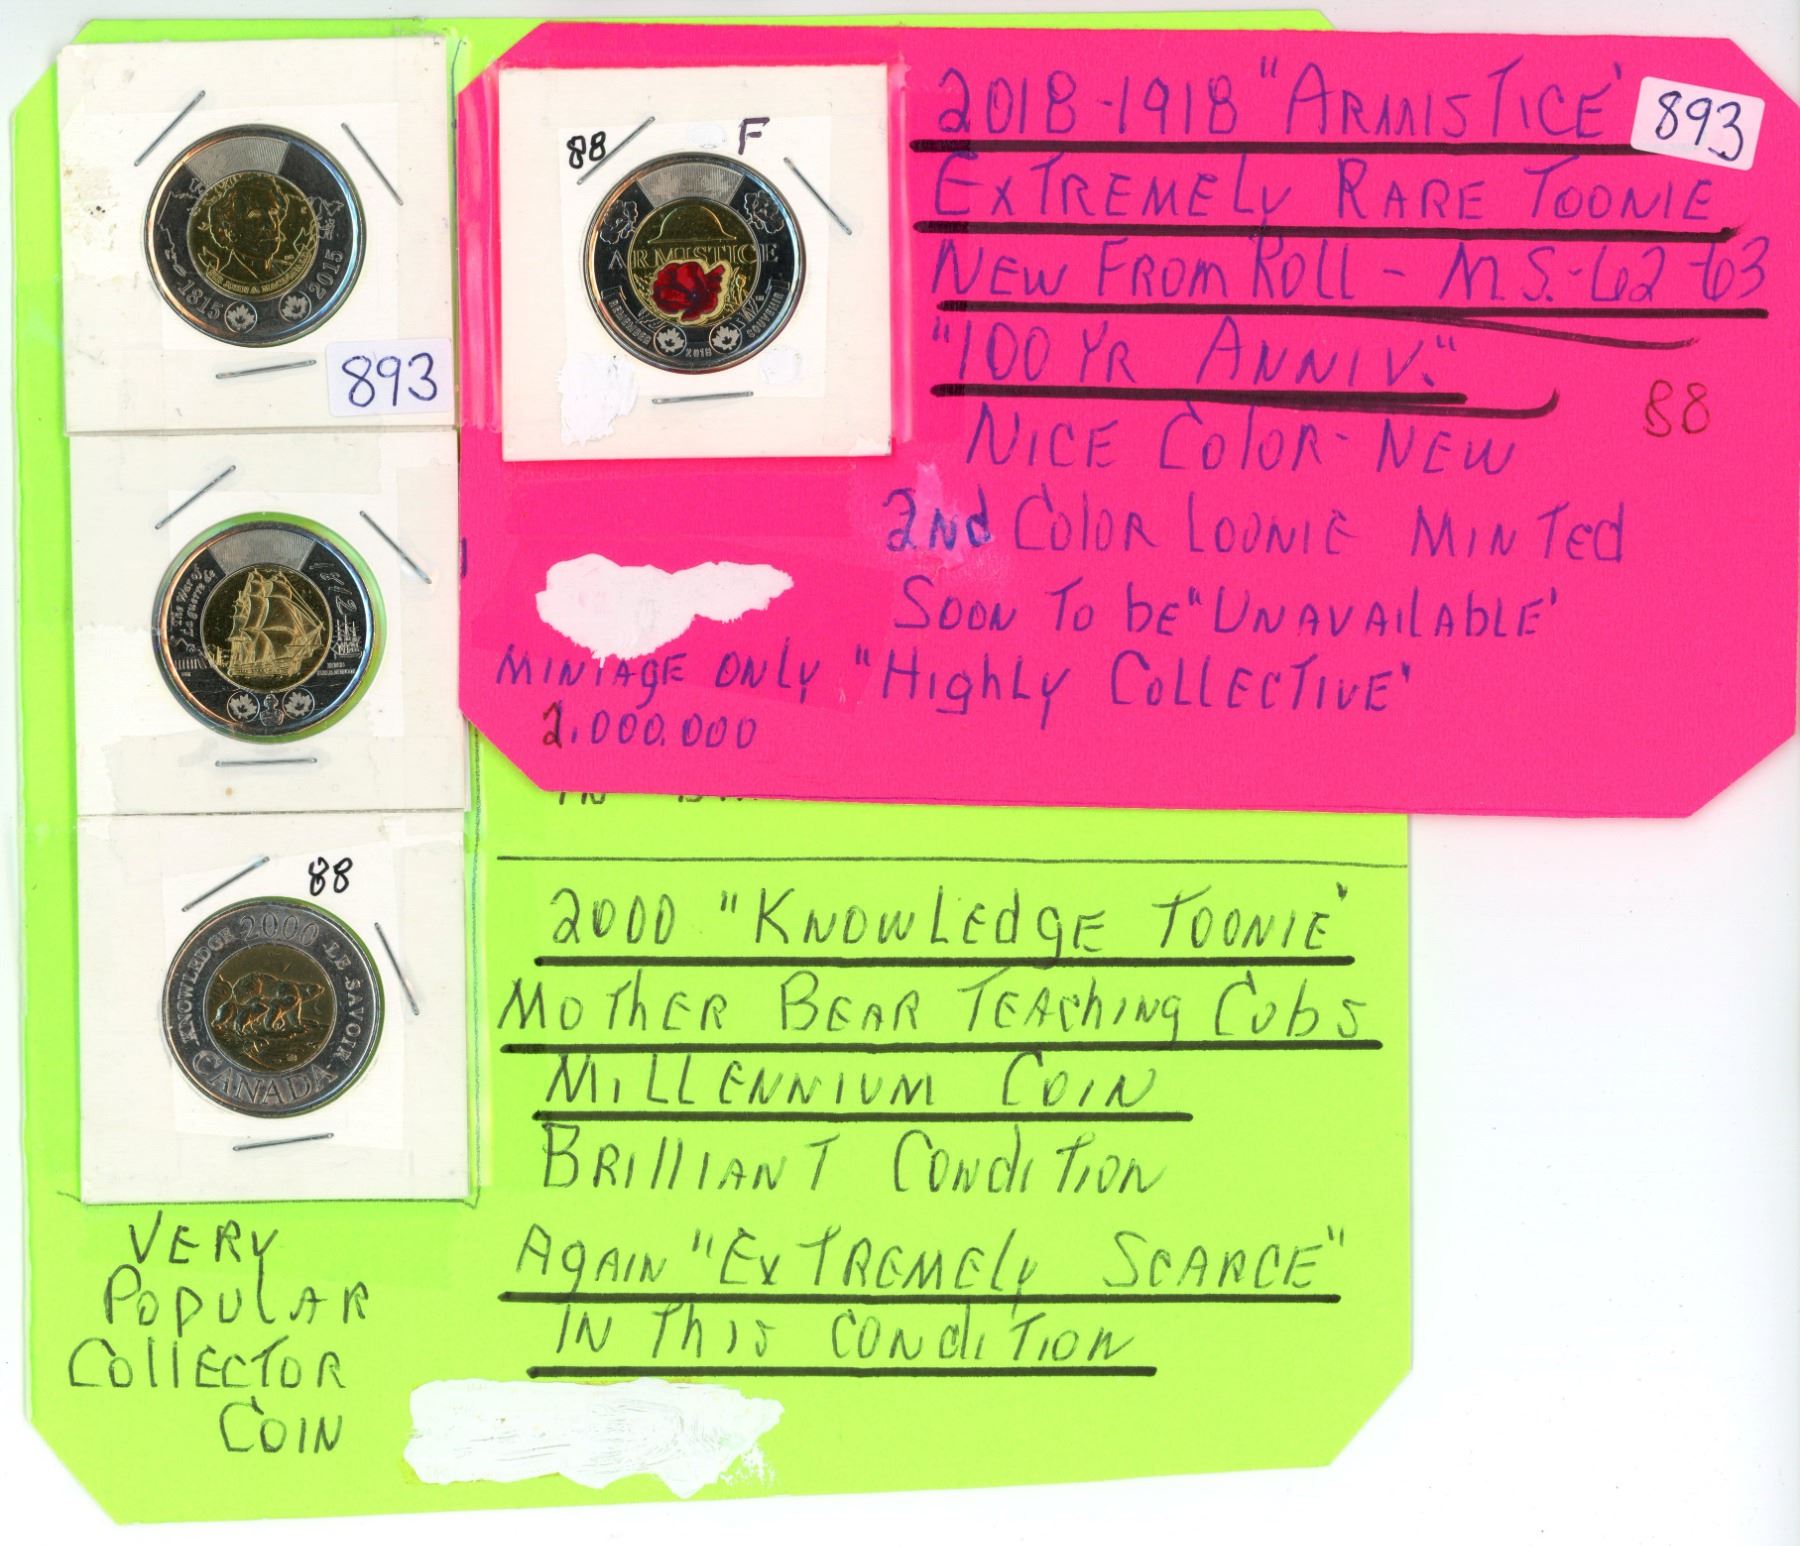 2018-1918 "ARMISTICE'
893
EXTREMELY RARE TOONIE
NEW FROM ROLL - M.S.-62-63
"100 YR ANNIV."
88
NICE COLOR- NEW
2Nd COLOR LOONIE MINTEd
SOON TO bE "UNAVAILAbLE'
MINTAGE ONLY "HIGHLY COLLECTIVE'
2.000.000
88 F
ARMISTICE
REMEMBER
2018
SOUVENIR
1815
2015
SIR JOHN A. MACDONALD
893
The War of
La guerre de
1812
HMS SHANNON
88
2000
KNOWLEDGE
LE SAVOIR
CANADA
IN
2000 "KNOWLEdgE TOONIE'
MOTHER BEAR TEACHINg CUbS
MILLENNIUM COIN
BRILLIANT CONdITION
AgAIN "EXTREMELY SCARCE"
IN THIS CONdITION
VERY
POPULAR
COLLECTOR
COIN